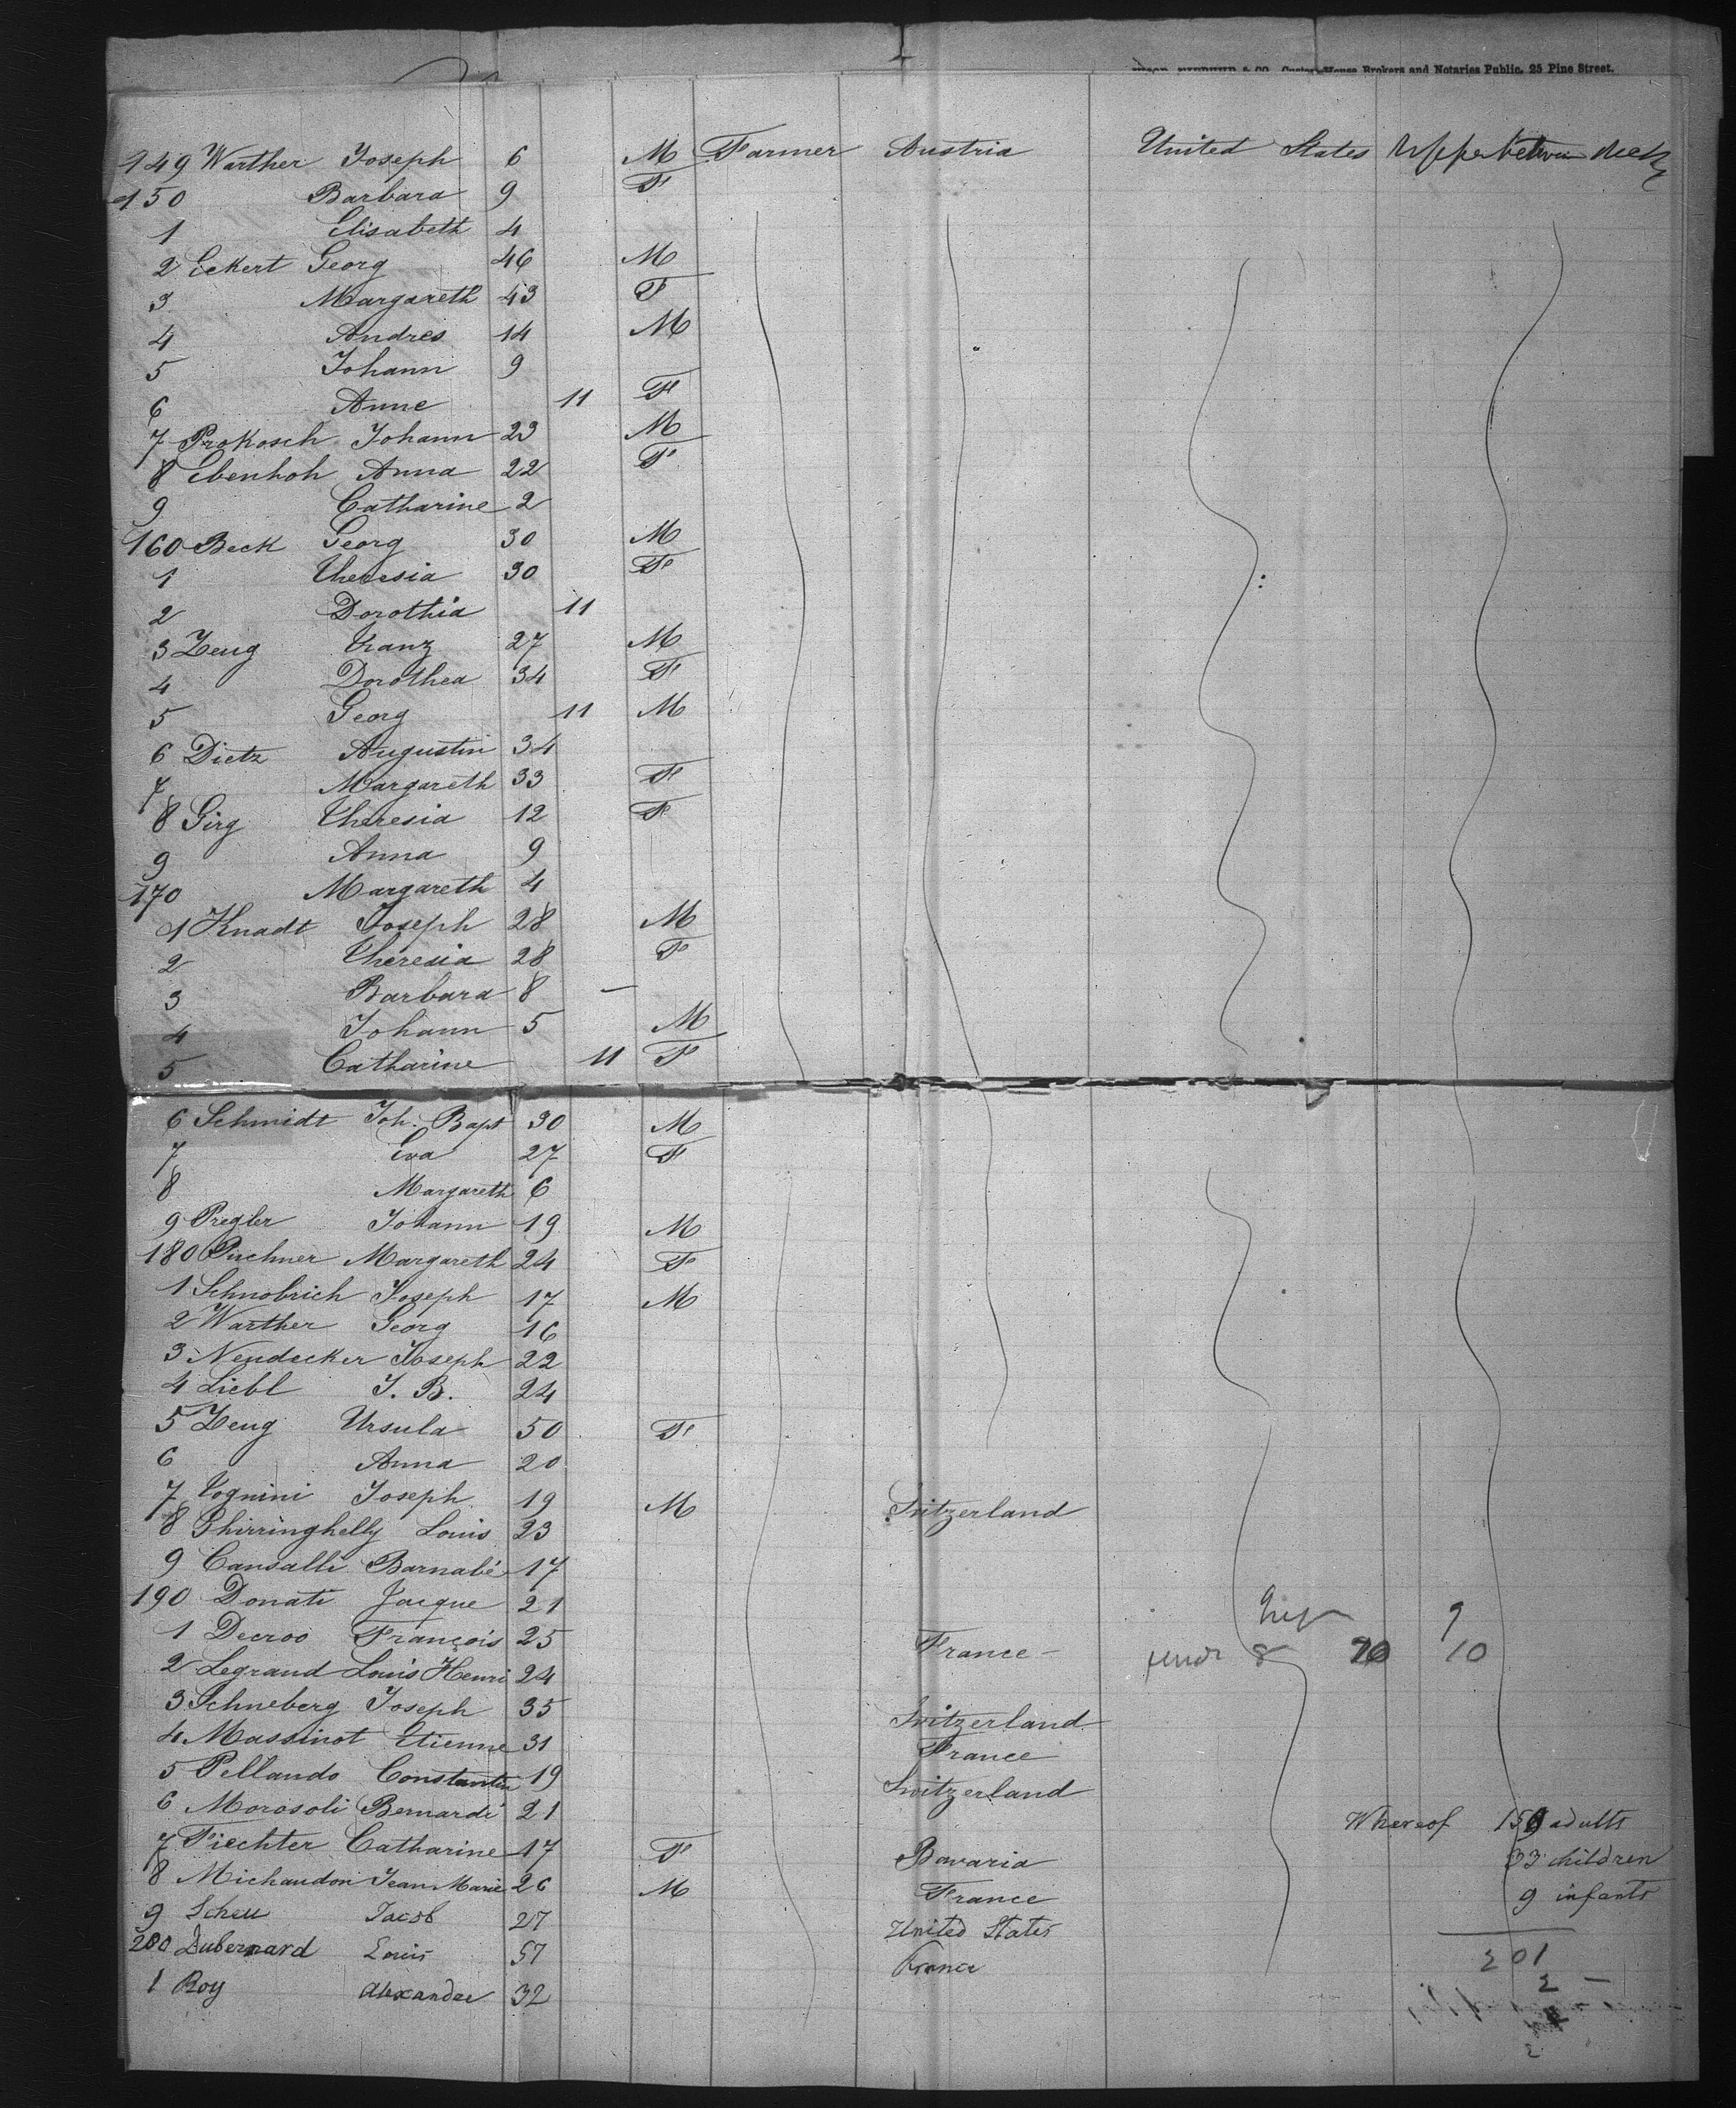 & CO. Custom-House Brokers and Notaries Public, 25 Pine Street.
149 Warther Joseph 6 M Farmer Austria United States Upper between deck
150 Barbara 9 F
1 Elisabeth 4
2 Eckert Georg 46 M
3 Margareth 43 F
4 Andres 14 M
5 Johann 9
6 Anne 11 F
7 Prokosch Johann 23 M
8 Ebenhoh Anna 22 F
9 Catharine 2
160 Beck Georg 30 M
1 Theresia 30 F
2 Dorothia 11
3 Zeug Franz 27 M
4 Dorothea 34 F
5 Georg 11 M
6 Dietz Augustin 34
7 Margareth 33 F
8 Girg Theresia 12 F
9 Anna 9
170 Margareth 4
1 Knadt Joseph 28 M
2 Theresia 28 F
3 Barbara 8 —
4 Johann 5 M
5 Catharine 11 F
6 Schmidt Joh. Bapt 30 M
7 Eva 27 F
8 Margareth 6
9 Pregler Johann 19 M
180 Puchner Margareth 24 F
1 Schnobrich Joseph 17 M
2 Warther Georg 16
3 Neudecker Joseph 22
4 Liebl J. B. 24
5 Zeug Ursula 50 F
6 Anna 20
7 Vognini Joseph 19 M Switzerland
8 Ghirringhelly Louis 23
9 Cansalli Barnabé 17
190 Donati Jacque 21
1 Decroo François 25 France - 8 10
9
2 Legrand Louis Henri 24
3 Schneberg Joseph 35 Switzerland
4 Massinot Etienne 31 France
5 Pellando Constantin 19 Switzerland
6 Morosoli Bernardi 21
Whereof 159 adults
7 Fiechter Catharine 17 F Bavaria 33 children
8 Michaudon Jean Marie 26 M France 9 infants
9 Scheu Jacob 27 United States
200 Dubernard Louis 57 France 201
1 Roy Alexandre 32
2